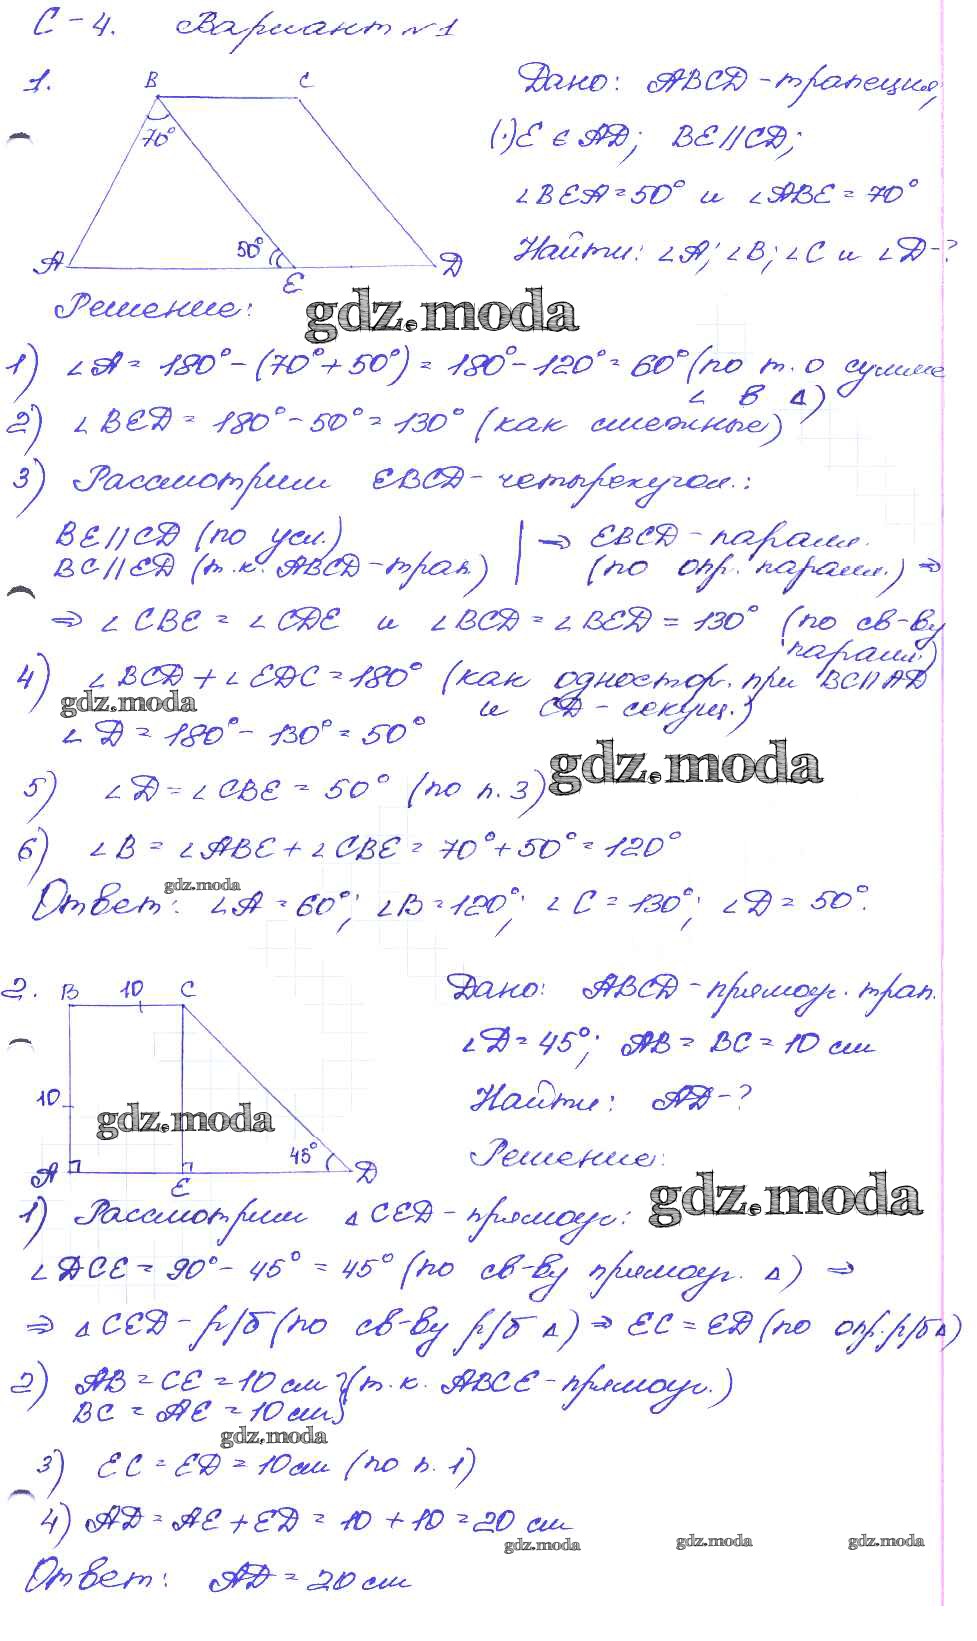 С-4. Вариант №1
1.
B C
70°
50°
A E D
Дано: ABCD-трапеция,
(·)E ∈ AD; BE||CD;
∠BEA=50° и ∠ABE=70°
Найти: ∠A; ∠B; ∠C и ∠D-?
Решение:
gdz.moda
1) ∠A=180°-(70°+50°)=180°-120°=60° (по т. о сумме
∠ в Δ)
2) ∠BED=180°-50°=130° (как смежные)
3) Рассмотрим EBCD-четырехугол.:
BE||CD (по усл.)
BC||ED (т.к. ABCD-трап.)
⇒ EBCD-парал.
(по опр. парал.) ⇒
⇒ ∠CBE=∠CDE и ∠BCD=∠BED=130° (по св-ву
парал.)
4) ∠BCD+∠EDC=180° (как одностор. при BC||AD
и CD-секущ.)
gdz.moda
∠D=180°-130°=50°
gdz.moda
5) ∠D=∠CBE=50° (по п.3)
6) ∠B=∠ABE+∠CBE=70°+50°=120°
gdz.moda
Ответ: ∠A=60°; ∠B=120°; ∠C=130°; ∠D=50°.
2.
B 10 C
10
gdz.moda
45°
A E D
Дано: ABCD-прямоуг. трап.
∠D=45°; AB=BC=10 см
Найти: AD-?
Решение:
gdz.moda
1) Рассмотрим ΔCED-прямоуг:
∠DCE=90°-45°=45° (по св-ву прямоуг. Δ) ⇒
⇒ ΔCED-р/б (по св-ву р/б Δ) ⇒ EC=ED (по опр. р/б Δ)
2) AB=CE=10 см } (т.к. ABCE-прямоуг.)
BC=AE=10 см
gdz.moda
3) EC=ED=10 см (по п.1)
4) AD=AE+ED=10+10=20 см
gdz.moda gdz.moda gdz.moda
Ответ: AD=20 см